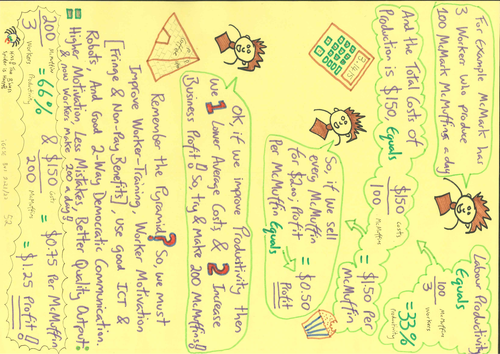 For example McMark has
3 Workers who produce
100 McMark McMuffins a day
Labour Productivity
Equals
100 McMuffins
3 Workers
= 33%
Productivity
And the Total Costs of
Production is $150, Equals
$150 Costs
100 McMuffin
= $1.50 Per
McMuffin
So, if we sell
every McMuffin
for $2.00; Profit
Per McMuffin Equals
= $0.50
Profit
OK if we improve Productivity then
We 1 Lower Average Costs & 2 Increase
Business Profit! So, try & make 200 McMuffins!
Remember the Pyramid? So we must
Improve Worker-Training, Worker Motivation
[Fringe & Non-Pay Benefits], Use Good ICT &
Robots, And Good 2-Way Democratic Communication.
= Higher Motivation, Less Mistakes, Better Quality Output:
& now workers make 200 a day!
200 McMuffins
3 Workers
= 66% Productivity
& $150 Costs
200 McMuffin
= $0.75 Per McMuffin
= $1.25 Profit!